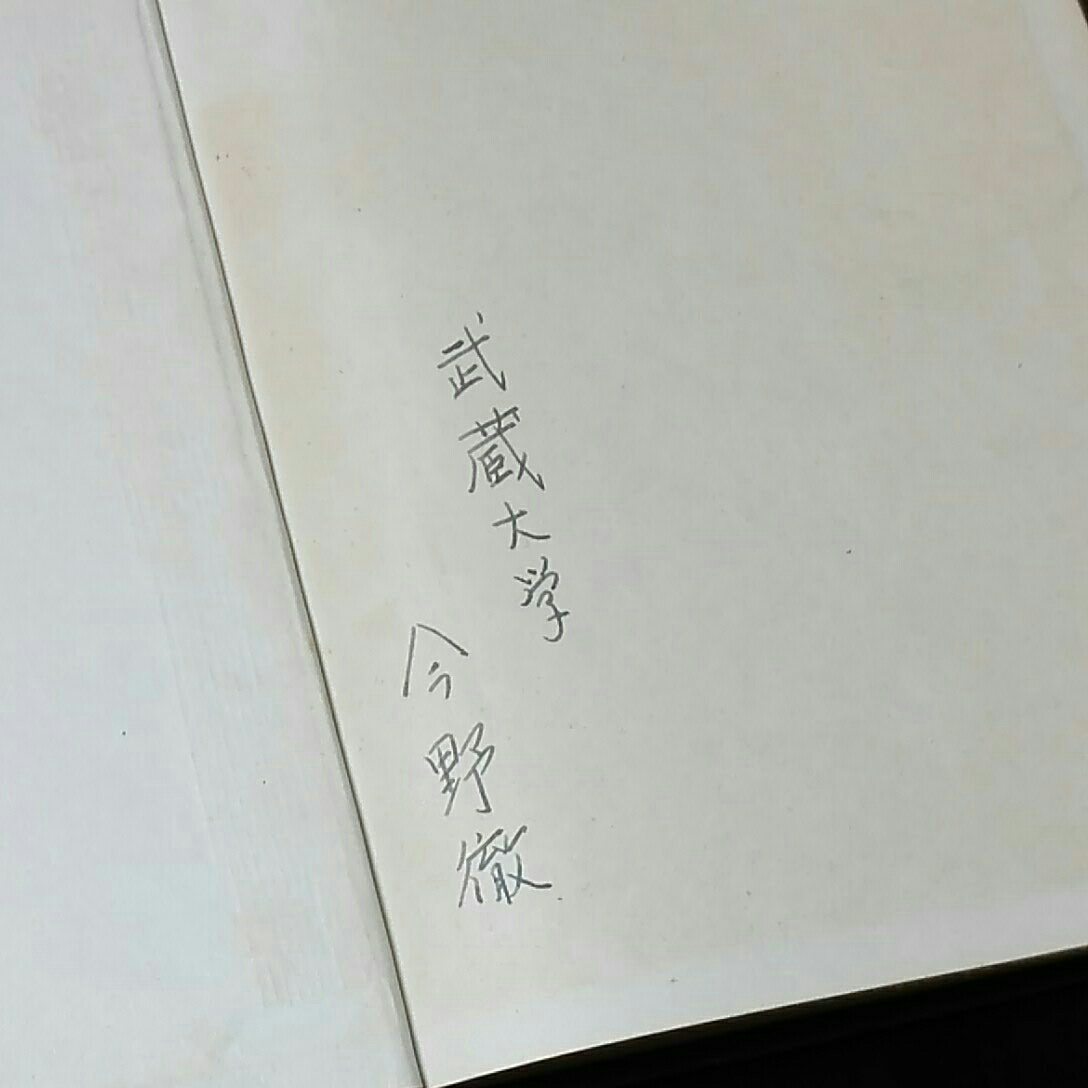 武蔵大学
今野徹